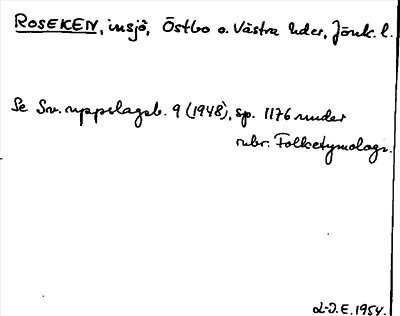 ROSEKEN, insjö, Östbo o. Västra hder, Jönk. l.
Se Sv. uppslagsb. 9 (1948), sp. 1176 under
rubr. Folketymologi.
L-J.E. 1954.